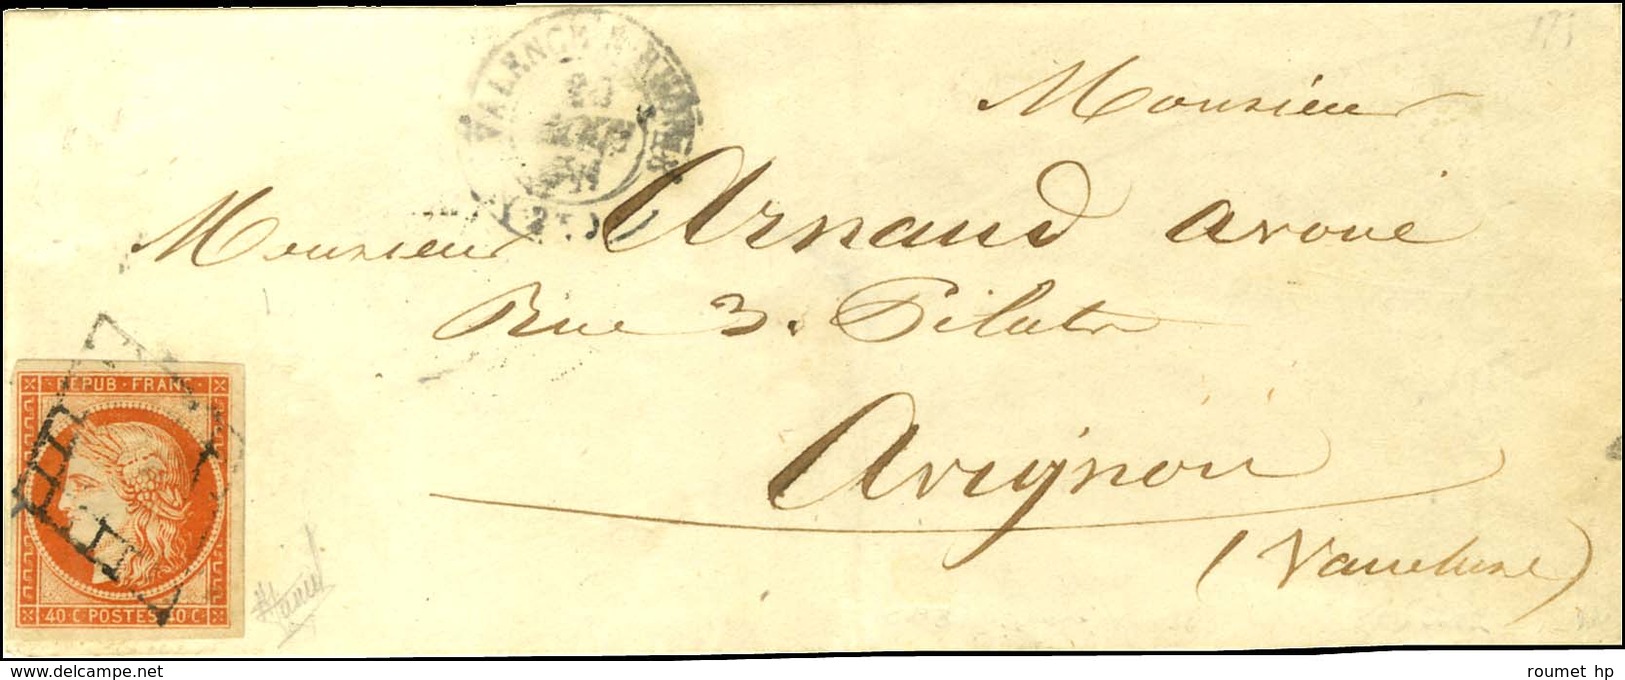 VALENCE S. RHONE
20
(25)
Monsieur
Monsieur Arnaud avoué
Rue 3. Pilats
Avignon
(Vaucluse)
REPUB·FRANC
40·C POSTES 40·C
roumet hp